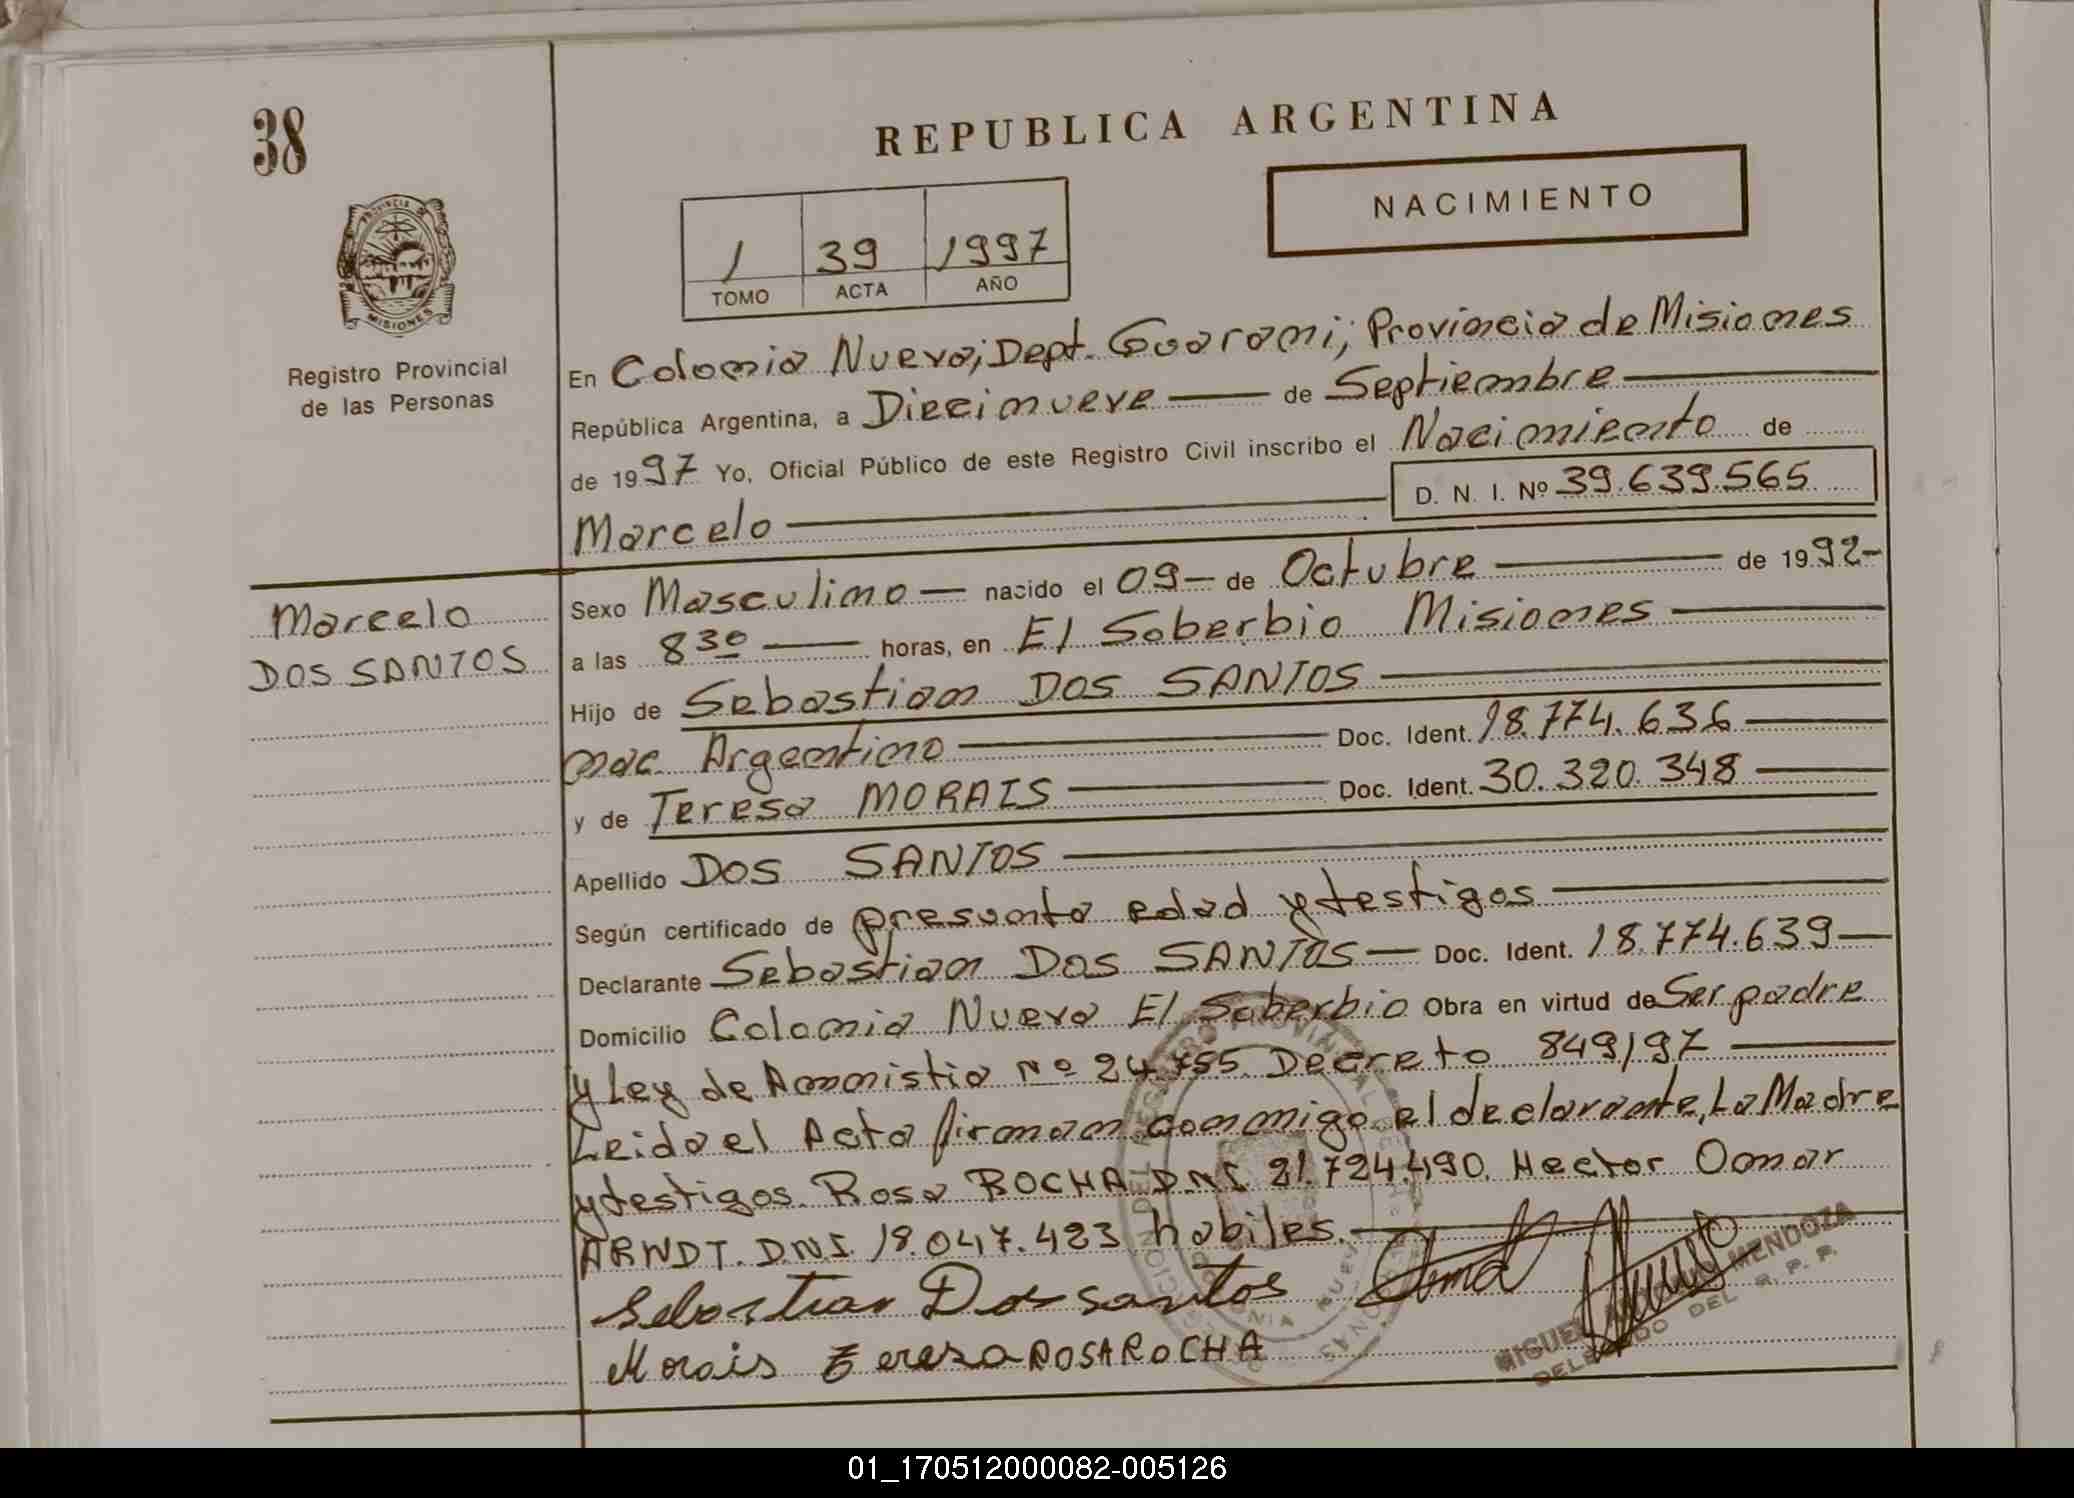 38
REPUBLICA ARGENTINA
NACIMIENTO
1 39 1997
TOMO ACTA AÑO
PROVINCIA DE
MISIONES
Registro Provincial
de las Personas
En Colonia Nueva; Dept. Guarani; Provincia de Misiones
República Argentina, a Diecinueve de Septiembre
de 1997 Yo, Oficial Público de este Registro Civil inscribo el Nacimiento de
D. N. I. Nº 39.639.565
Marcelo
Marcelo
DOS SANTOS
Sexo Masculino nacido el 09 de Octubre de 1992
a las 8 30 horas, en El Soberbio Misiones
Hijo de Sebastian DOS SANTOS
nac. Argentino Doc. Ident. 18.774.636
y de Teresa MORAIS Doc. Ident. 30.320.348
Apellido DOS SANTOS
Según certificado de presunta edad y testigos
Declarante Sebastian DOS SANTOS Doc. Ident. 18.774.639
Domicilio Colonia Nueva El Soberbio Obra en virtud de Ser padre
y Ley de Amnistia Nº 24.755 Decreto 849/97
Leida el Acta firman conmigo el declarante, La Madre
y testigos Rosa ROCHA D.N.I. 21.724.490. Hector Omar
ARNDT. D.N.I. 18.047.423 habiles.
Sebastian Dos santos
Morais Tereza ROSA ROCHA
MIGUEL ANTONIO MENDOZA
DELEGADO DEL R. P. P.
01_170512000082-005126